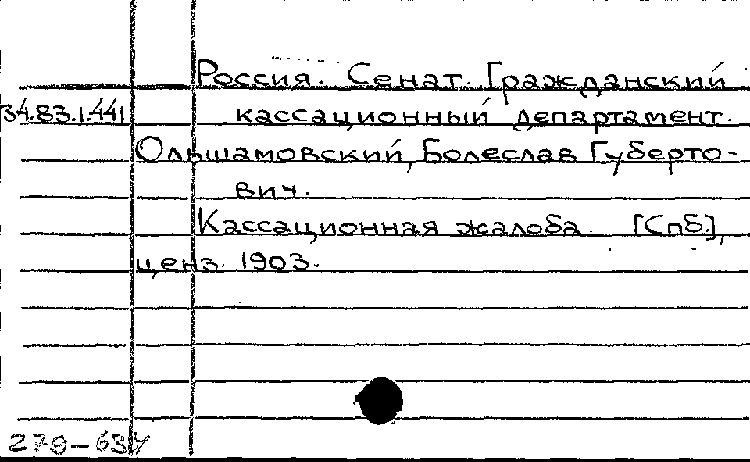 Россия. Сенат. Гражданский
34.83.1.441 кассационный департамент.
Ольшамовский, Болеслав Губерто-
вич.
Кассационная жалоба [Спб.],
ценз. 1903.